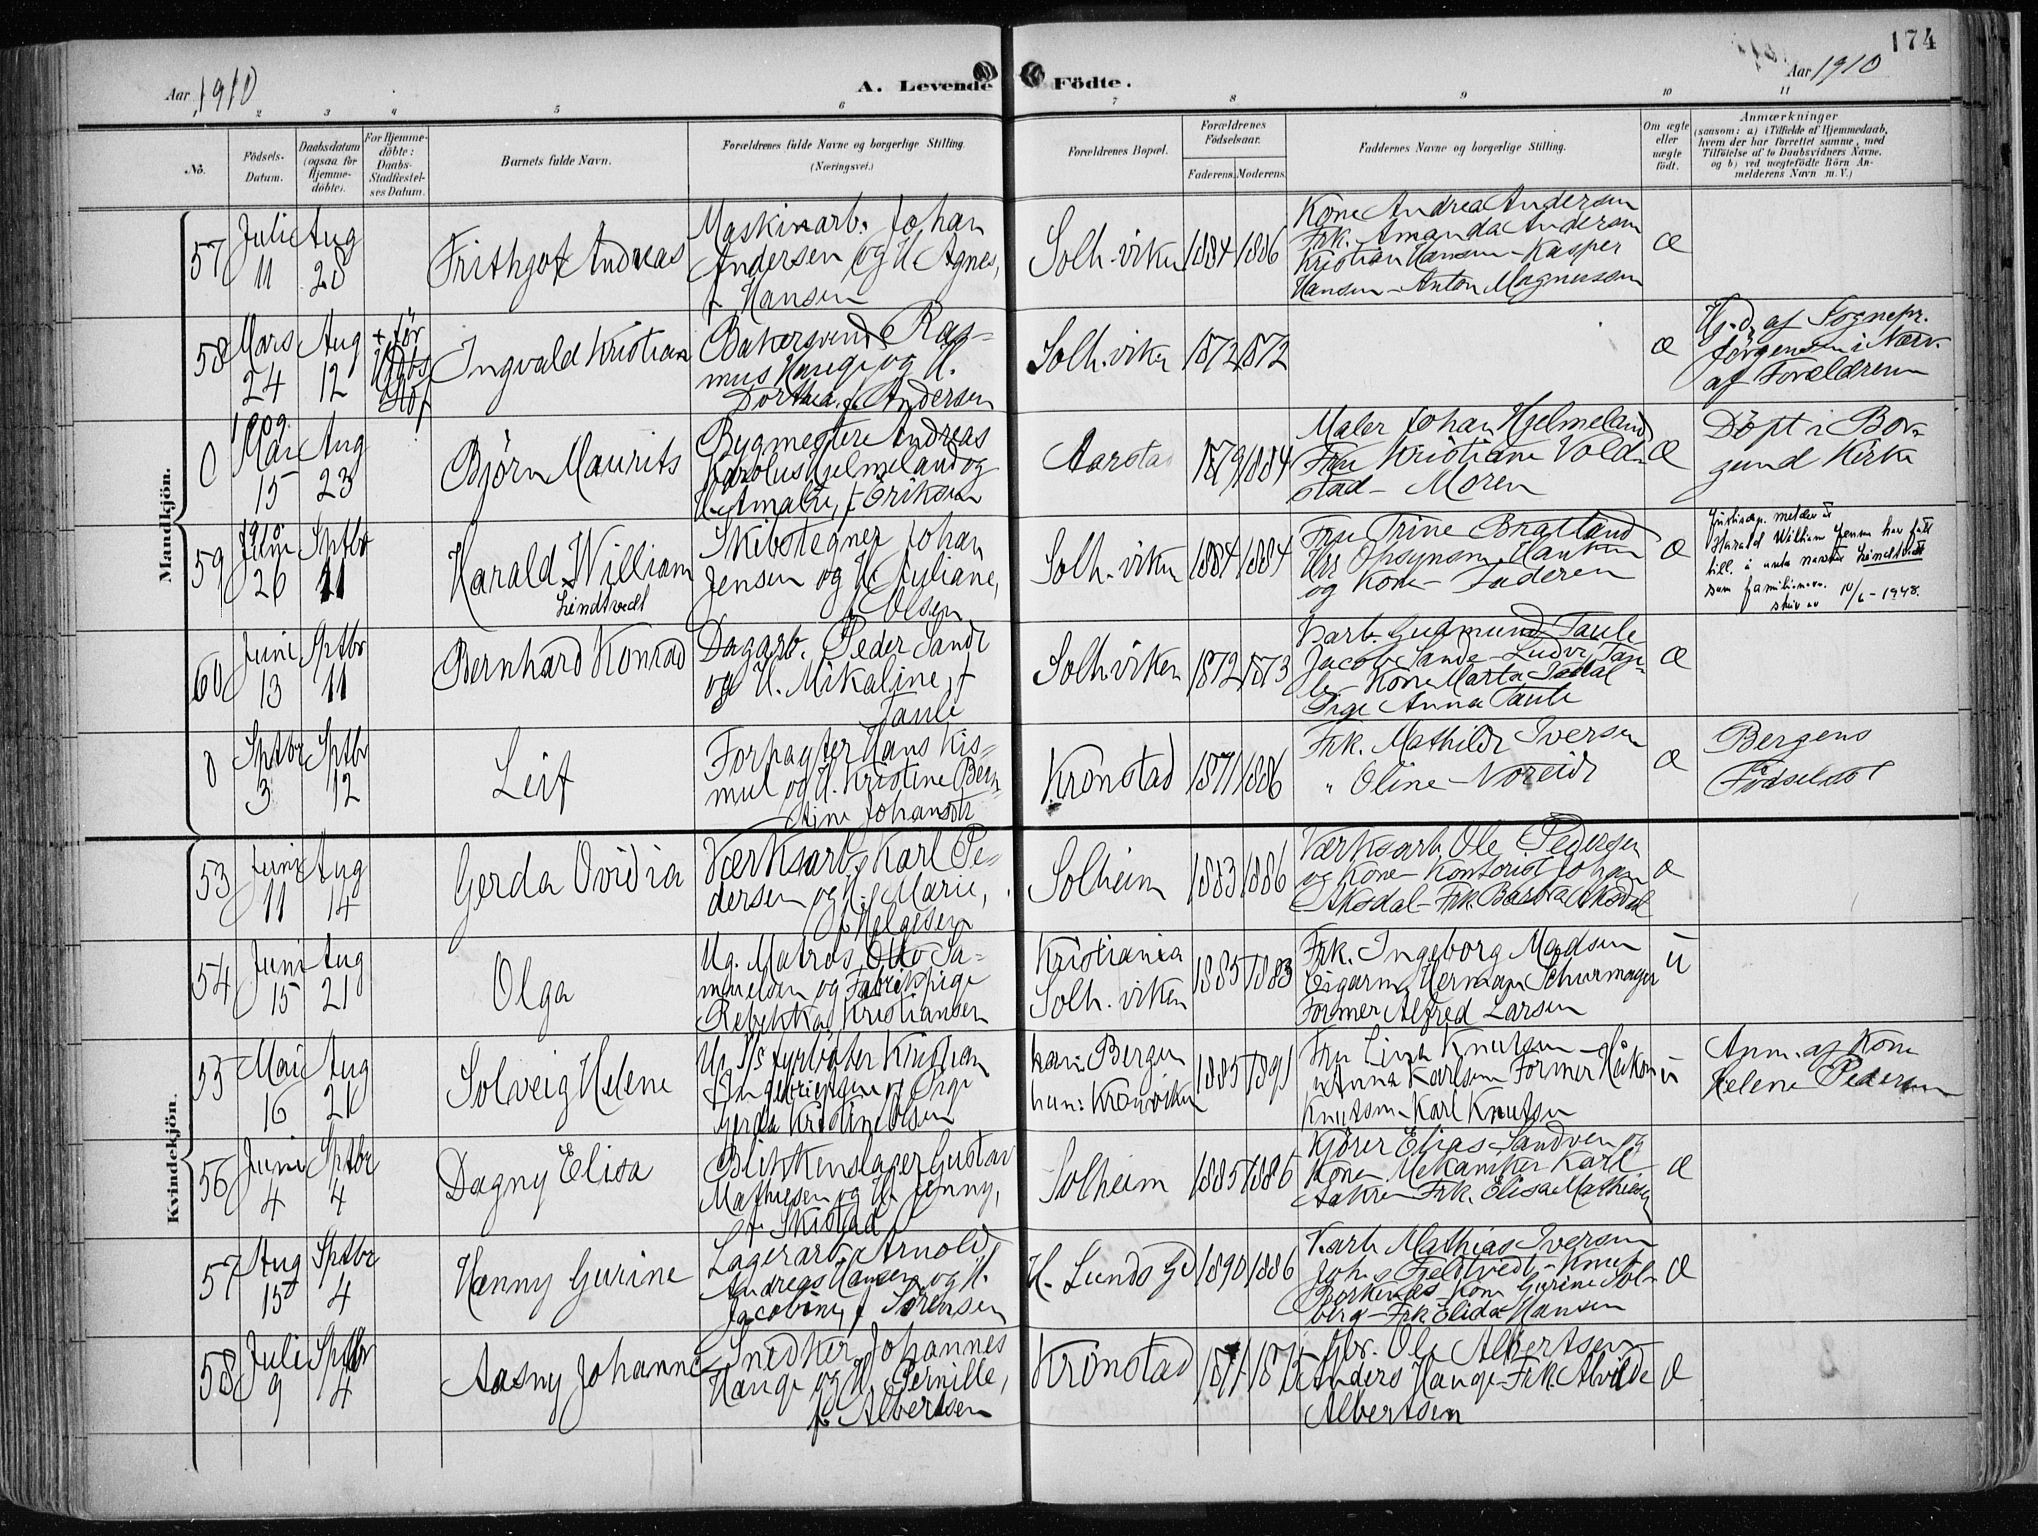 174
Aar 1910
A. Levende Födte.
Aar 1910
1 2 3 4 5 6 7 8 9 10 11
No.
Födsels-Datum.
Daabsdatum (ogsaa for Hjemmedöbte).
For Hjemmedöbte: Daabs-Stadfæstelses Datum.
Barnets fulde Navn.
Forældrenes fulde Navne og borgerlige Stilling. (Næringsvei.)
Forældrenes Bopæl.
Forældrenes Födselsaar.
Faderens. Moderens.
Faddernes Navne og borgerlige Stilling.
Om ægte eller uægte födt.
Anmærkninger
(saasom: a) i Tilfælde af Hjemmedaab, hvem der har forrettet samme, med Tilföielse af to Daabsvidners Navne, og b) ved uægtefödte Börn Anmelderens Navn m. V.)
Mandkjön.
57 Juli 11 Aug 28
Frithjof Andreas
Maskinarb. Johan
Andersen og H. Agnes,
f. Hansen
Solh.viken 1884 1886
Kone Andrea Andersen
Frk. Amanda Andersen
Kristian Hansen - Kasper
Hansen - Anton Magnussen
æ
58 Mars 24 Aug 12
+ för
Ingvald Kristian
Bakersvend Ras-
mus Hauge og H.
Dorthea, f. Andersen
Solh.viken 1872 1872
æ
Hj.d. af Sognepr.
Jörgensen i Nærv.
af Forældrene
0 1909 Mai 15 Aug 23
Björn Maurits
Bygmester Andreas
Karolus Hjelmeland og
H. Amalie, f. Eriksen
Aarstad 1879 1884
Maler Johan Hjelmeland
Fru Kristiane Vold-
stad - Moren
æ
Döpt i Bor-
gund Kirke
59 1910 Juni 26 Sptbr 11
Harald William
Lindtvedt
Skibstegner Johan
Jensen og H. Juliane,
f. Olsen
Solh.viken 1884 1884
Fru Trine Bratland
Hrr Opsynsm. Hauken
og Kone - Faderen
æ
Justisdep. melder at
Harald William Jensen har fått
till. å anta navnet Lindtvedt
som familienavn.
skriv av 10/6 - 1948.
60 Juni 13 Sptbr 11
Bernhard Konrad
Dagarb. Peder Sande
og H. Mikaline, f.
Taule
Solh.viken 1872 1873
Jacob Sande - Ludv. Tau-
le - Kone Marta
Pige Anna Taule
æ
0 Sptbr 3 Sptbr 12
Leif
Forpagter Hans Kis-
mul og H. Kristine Bern-
tine Johansdtr
Kronstad 1871 1886
Frk. Mathilde Iversen
" Oline Noreide
æ
Bergens
Födselsst
Kvindekjön.
53 Juni 11 Aug 14
Gerda Ovidia
Værksarb. Karl Pe-
dersen og H. Marie,
f. Helgesen
Solheim 1883 1886
Værksarb. Ole Pedersen
og Kone - Kontorist Johan
Askedal - Frk. Barbra Askedal
æ
54 Juni 15 Aug 21
Olga
Ug. Matros Otto Sa-
muelsen og Fabrikpige
Rebekka Kristiansen
Kristiania
Solh.viken
1885 1883
Frk. Ingeborg Madsen
Cigarm. Herman Schurmager
Former Alfred Larsen
u
55 Mai 16 Aug 21
Solveig Helene
Ug. D/s fyrböter Kristian
Ingebrigtsen og Pige
Gerda Kristine Olsen
han: Bergen
hun: Kronviken
1885 1891
Fru Lina Knutsen -
" Anna Karlsen Former Håkon
Knutsen - Karl Knutsen
u
Anm. af Kone
Helene Pedersen
56 Juni 4 Sptbr 4
Dagny Elisa
Blikkenslager Gustav
Mathiesen og H. Jenny,
f. Skistad
Solheim 1885 1886
Kjörer Elias Sandven og
Kone Mekaniker Karl
Aakre - Frk. Elisa Mathiesen
æ
57 Aug 15 Sptbr 4
Hanny Gurine
Lagerarb. Arnold
Andreas Hansen og H.
Jacobine, f. Sörensen
H. Lunds Gd 1890 1886
Karb. Mathias Iversen
Johs Fjeldtvedt - Knut
Birkenes - Kone Gurine Sol-
berg - Frk Elida Hansen
æ
58 Juli 9 Sptbr 4
Aasny Johanne
Snedker Johannes
Hauge og H. Pernille,
f. Albertsen
Kronstad 1871 1875
Gbr. Ole Albertsen
Anders Hauge - Frk. Alvilde
Albertsen
æ